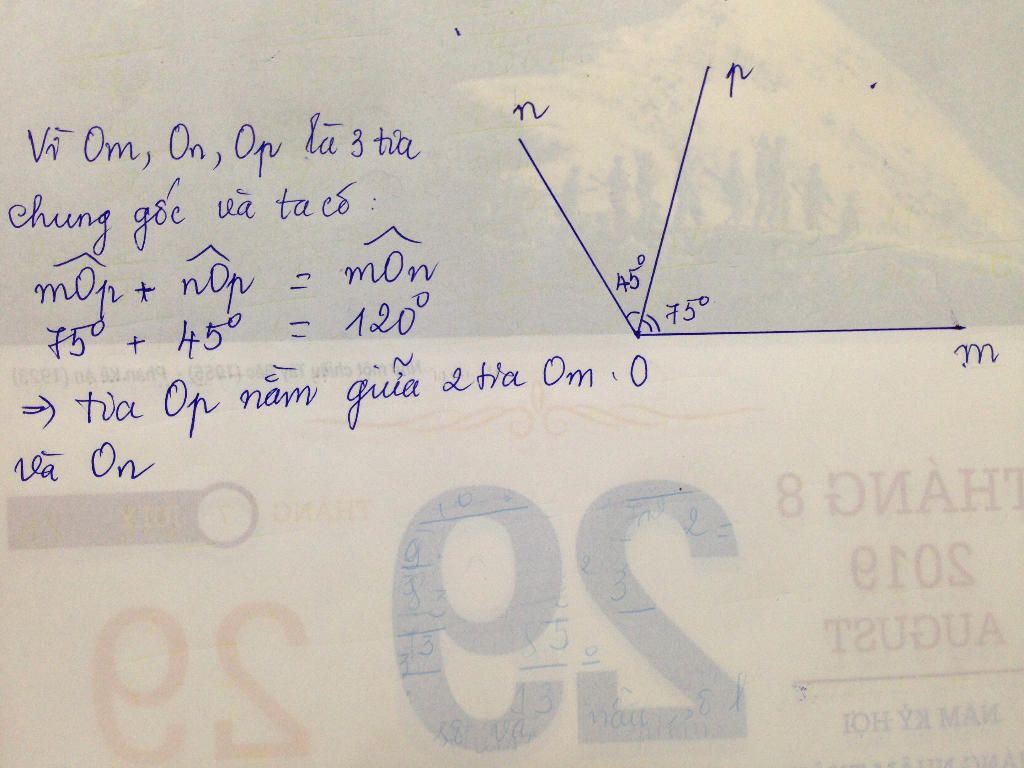 Vì Om, On, Op là 3 tia
chung gốc và ta có :
mOp + nOp = mOn
75° + 45° = 120°
⇒ tia Op nằm giữa 2 tia Om
và On
n
p
45°
75°
m
O
Phan Kế An (1923)
THÁNG 8
2019
AUGUST
29
THÁNG
7
29
NĂM KỶ HỢI